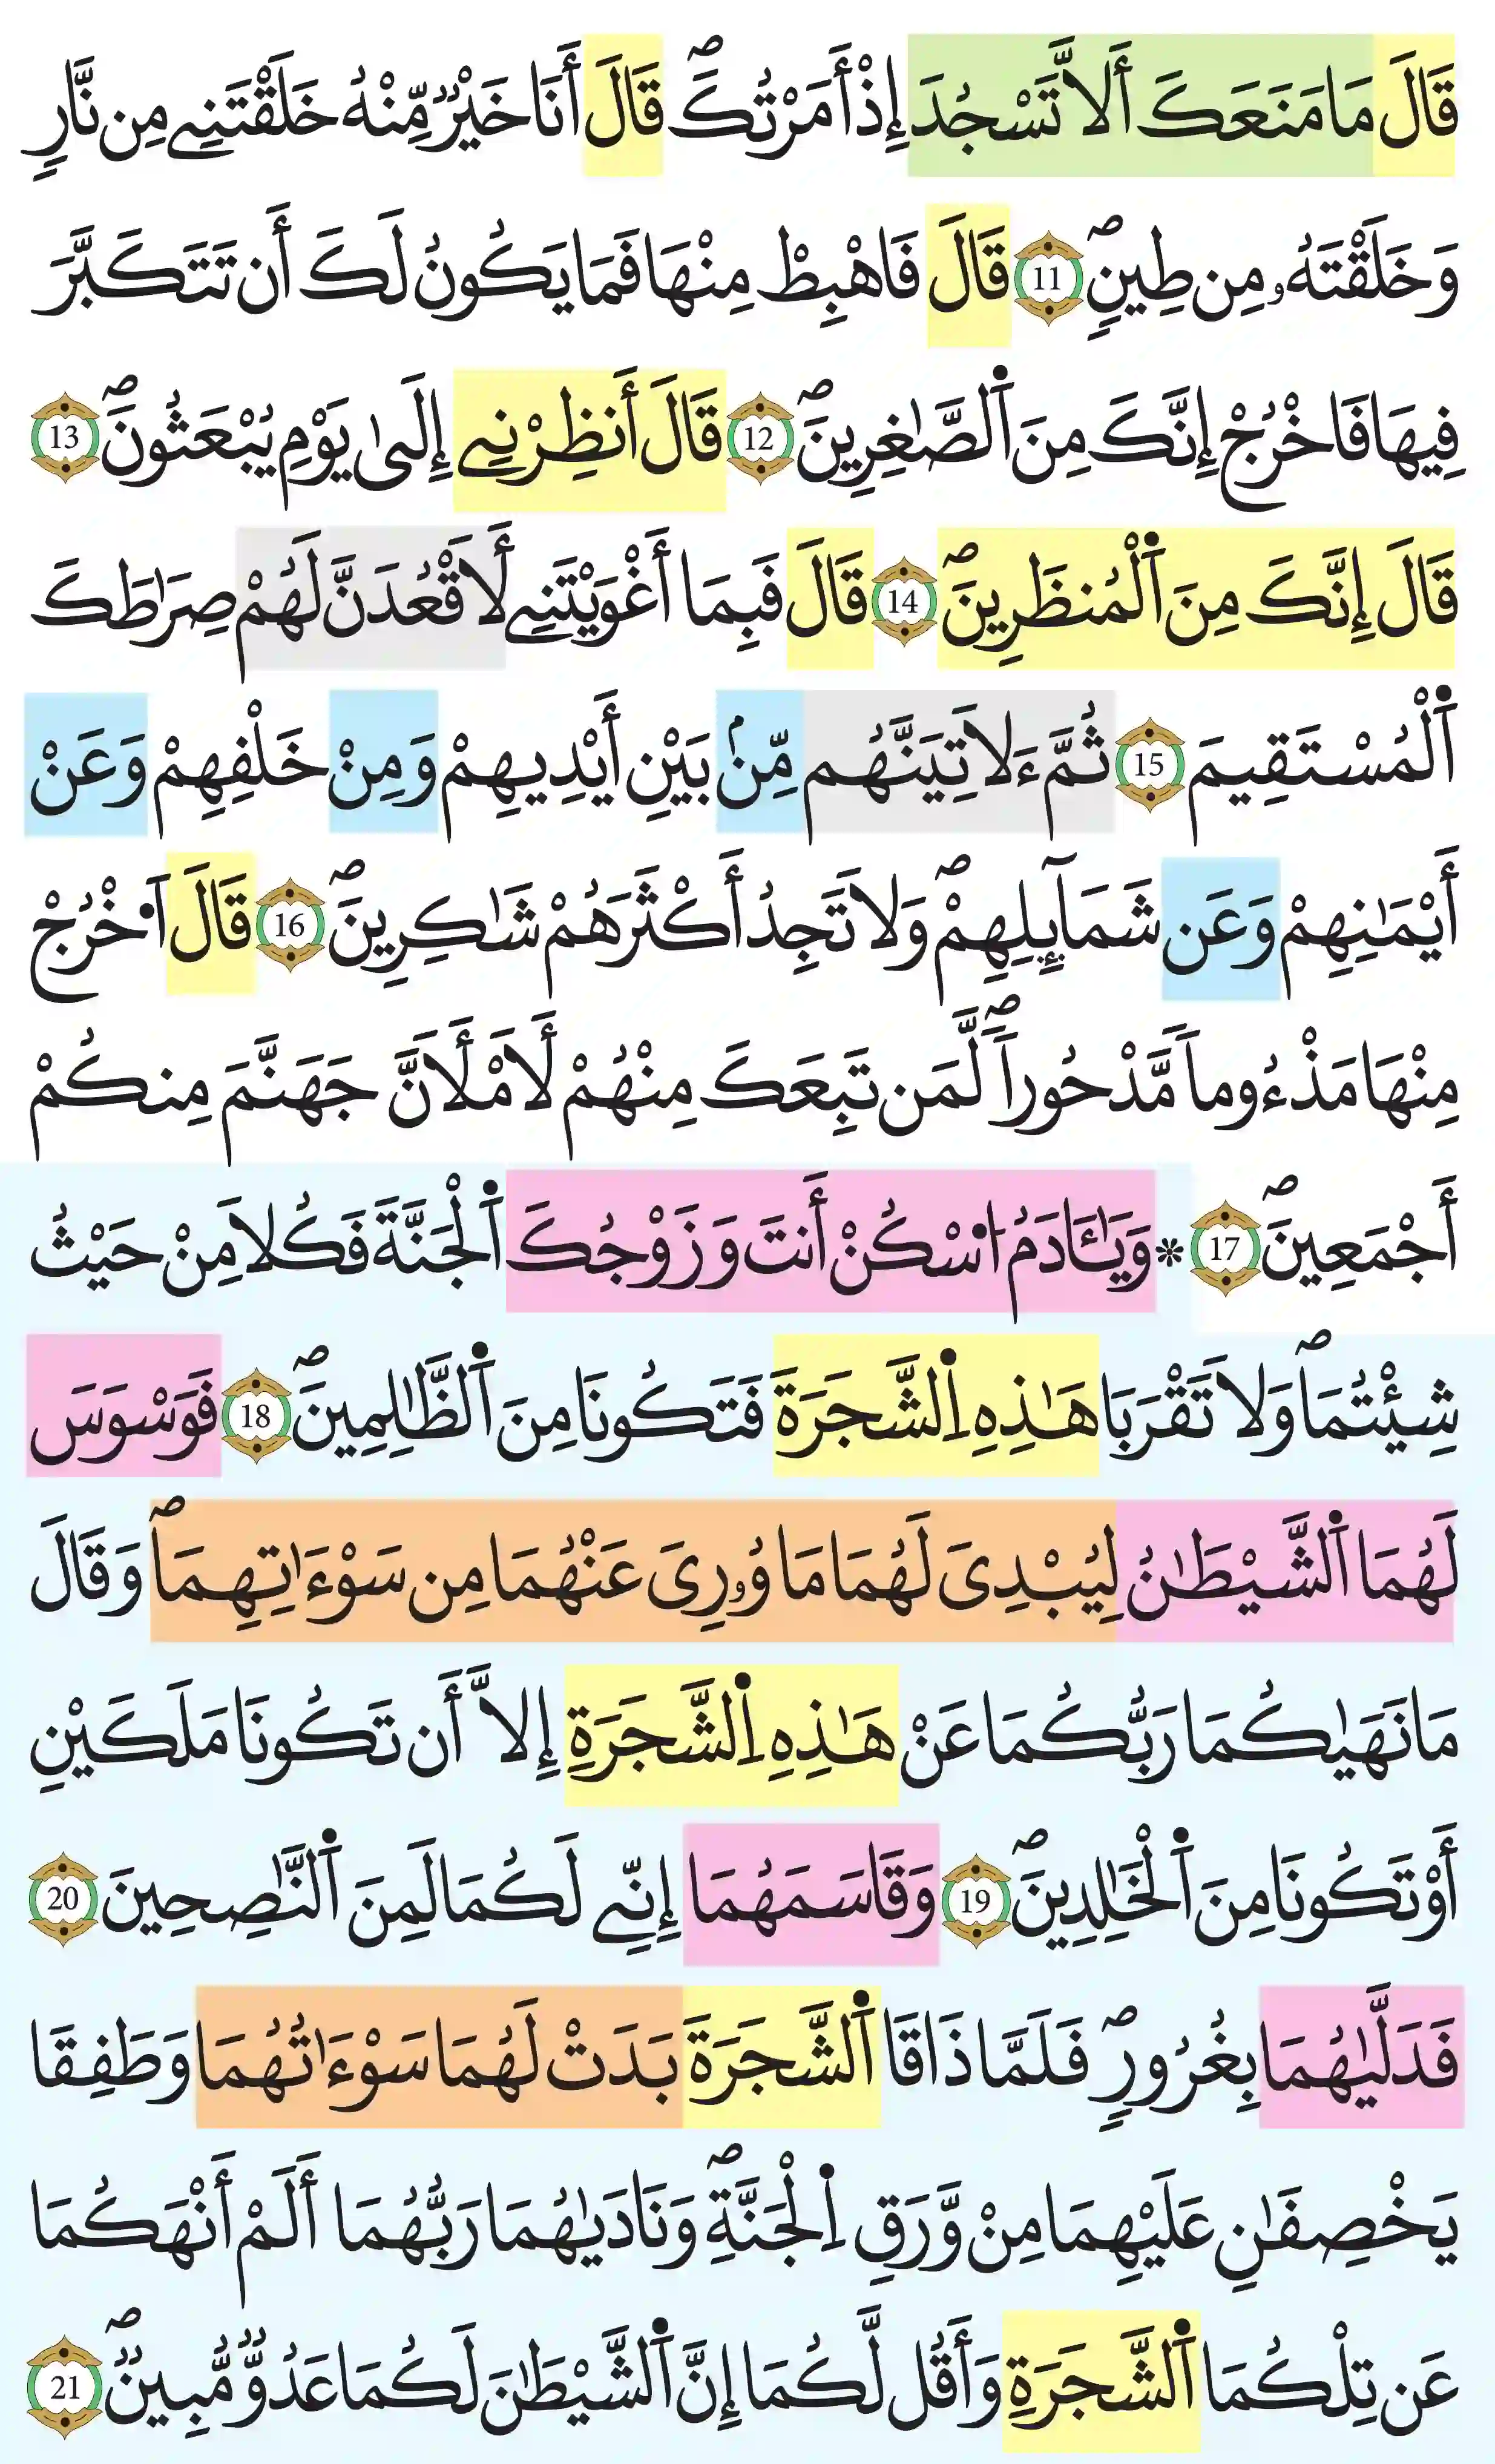 قَالَ مَا مَنَعَكَ أَلَّا تَسْجُدَ إِذْ أَمَرْتُكَۖ قَالَ أَنَا خَيْرٌ مِّنْهُ خَلَقْتَنِے مِن نَّارٍ
وَخَلَقْتَهُۥ مِن طِينٍۖ 11 قَالَ فَاهْبِطْ مِنْهَا فَمَا يَكُونُ لَكَ أَن تَتَكَبَّرَ
فِيهَا فَاخْرُجْ إِنَّكَ مِنَ اَ۬لصَّٰغِرِينَۖ 12 قَالَ أَنظِرْنِے إِلَىٰ يَوْمِ يُبْعَثُونَۖ 13
قَالَ إِنَّكَ مِنَ اَ۬لْمُنظَرِينَۖ 14 قَالَ فَبِمَا أَغْوَيْتَنِے لَأَقْعُدَنَّ لَهُمْ صِرَٰطَكَ
اَ۬لْمُسْتَقِيمَ 15 ثُمَّ ءَلَاتِيَنَّهُم مِّنۢ بَيْنِ أَيْدِيهِمْ وَمِنْ خَلْفِهِمْ وَعَنْ
أَيْمَٰنِهِمْ وَعَن شَمَآئِلِهِمْۖ وَلَا تَجِدُ أَكْثَرَهُمْ شَٰكِرِينَۖ 16 قَالَ اَ۟خْرُجْ
مِنْهَا مَذْءُوماٗ مَّدْحُوراٗۖ لَّمَن تَبِعَكَ مِنْهُمْ لَأَمْلَأَنَّ جَهَنَّمَ مِنكُمْ
أَجْمَعِينَۖ 17 * وَيَٰـَٔادَمُ اُ۟سْكُنْ أَنتَ وَزَوْجُكَ اَ۬لْجَنَّةَ فَكُلَا مِنْ حَيْثُ
شِئْتُمَاۖ وَلَا تَقْرَبَا هَٰذِهِ اِ۬لشَّجَرَةَ فَتَكُونَا مِنَ اَ۬لظَّٰلِمِينَۖ 18 فَوَسْوَسَ
لَهُمَا اَ۬لشَّيْطَٰنُ لِيُبْدِىَ لَهُمَا مَا وُۥرِىَ عَنْهُمَا مِن سَوْءَٰتِهِمَاۖ وَقَالَ
مَا نَهَىٰكُمَا رَبُّكُمَا عَنْ هَٰذِهِ اِ۬لشَّجَرَةِ إِلَّا أَن تَكُونَا مَلَكَيْنِ
أَوْ تَكُونَا مِنَ اَ۬لْخَٰلِدِينَۖ 19 وَقَاسَمَهُمَا إِنِّے لَكُمَا لَمِنَ اَ۬لنَّٰصِحِينَ 20
فَدَلَّىٰهُمَا بِغُرُورٍۖ فَلَمَّا ذَاقَا اَ۬لشَّجَرَةَ بَدَتْ لَهُمَا سَوْءَٰتُهُمَا وَطَفِقَا
يَخْصِفَٰنِ عَلَيْهِمَا مِنْ وَّرَقِ اِ۬لْجَنَّةِۖ وَنَادَىٰهُمَا رَبُّهُمَا أَلَمْ أَنْهَكُمَا
عَن تِلْكُمَا اَ۬لشَّجَرَةِ وَأَقُل لَّكُمَا إِنَّ اَ۬لشَّيْطَٰنَ لَكُمَا عَدُوٌّ مُّبِينٌۖ 21